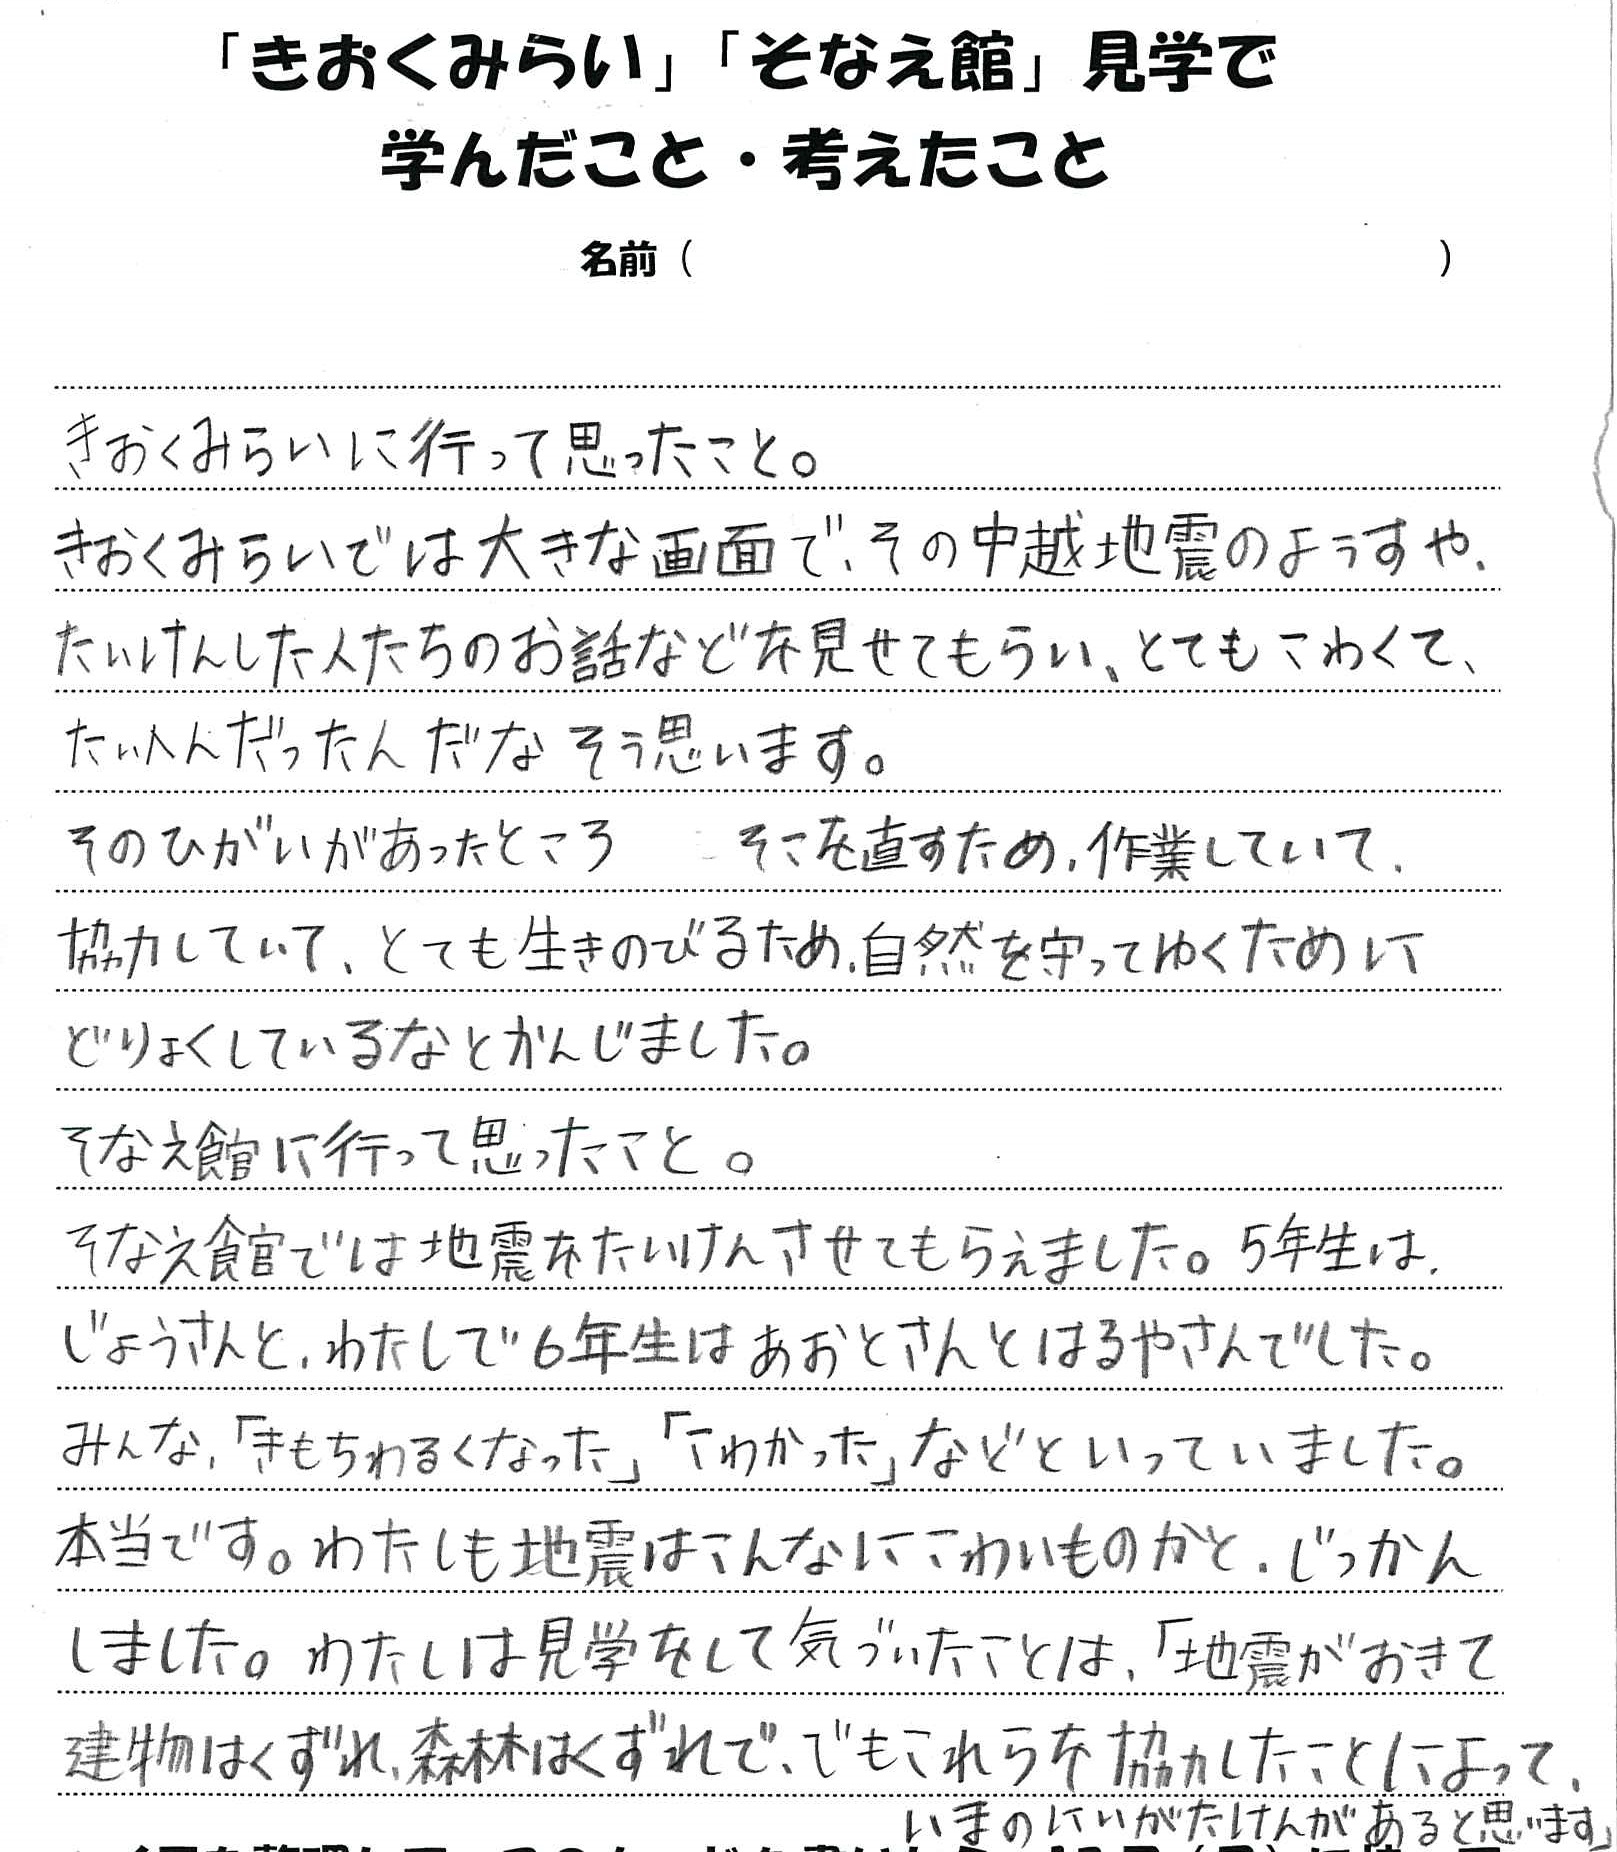 「きおくみらい」「そなえ館」見学で
学んだこと・考えたこと
名前（　　　　　　　　　　）
きおくみらいに行って思ったこと。
きおくみらいでは大きな画面で、その中越地震のようすや、
たいけんした人たちのお話などを見せてもらい、とてもこわくて、
たいへんだったんだなそう思います。
そのひがいがあったところ　　そこを直すため、作業していて、
協力していて、とても生きのびるため、自然を守ってゆくために
どりょくしているなとかんじました。
そなえ館に行って思ったこと。
そなえ館では地震をたいけんさせてもらえました。5年生は、
じょうさんと、わたしで6年生はあおとさんとはるやさんでした。
みんな、「きもちわるくなった」「こわかった」などといっていました。
本当です。わたしも地震はこんなにこわいものかと、じっかん
しました。わたしは見学をして気づいたことは、「地震がおきて
建物はくずれ、森林はくずれて、でもこれらを協力したことによって、
いまのにいがたけんがあると思います」